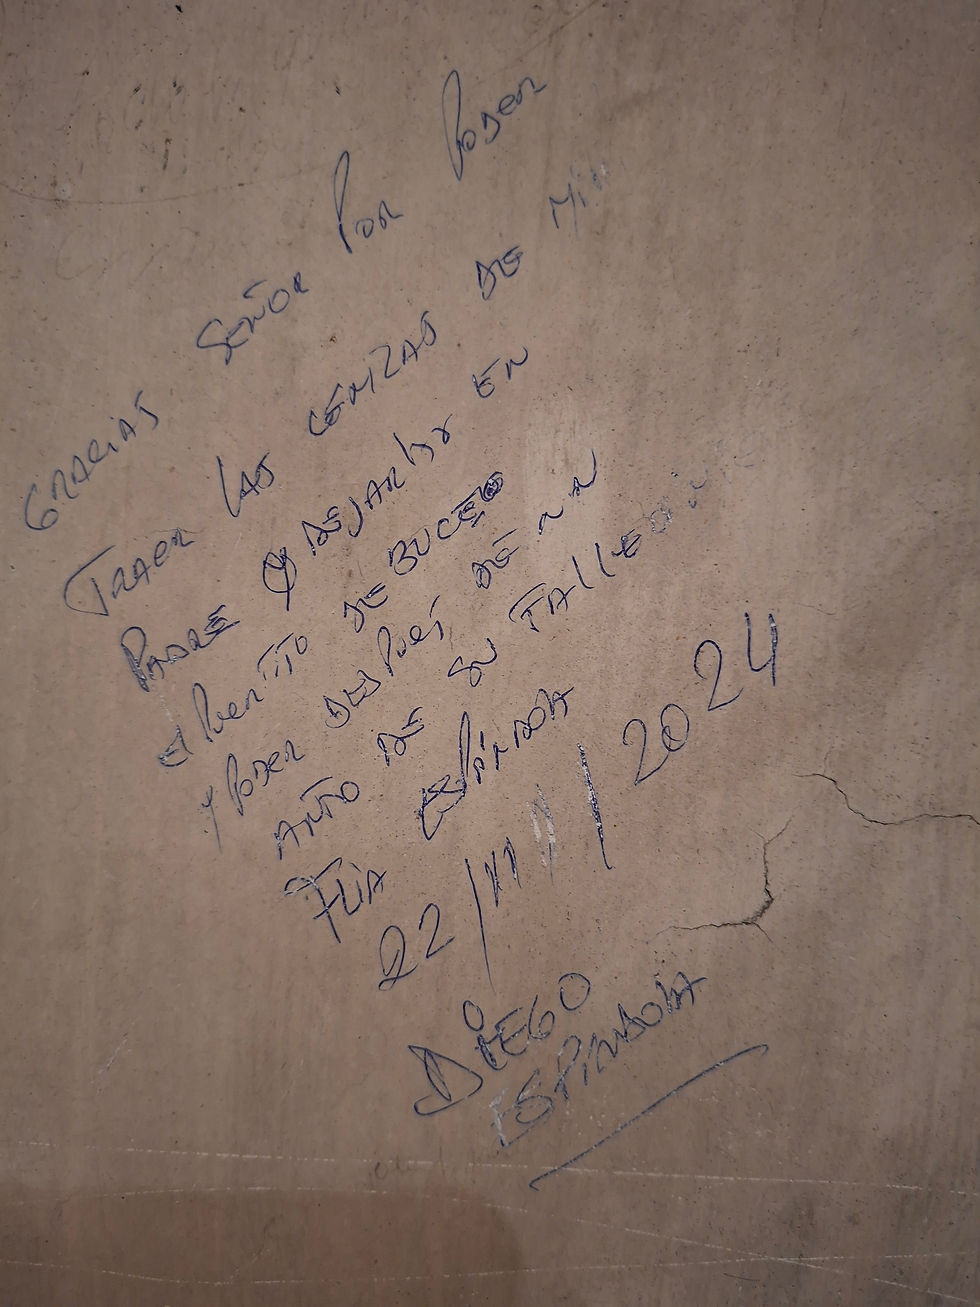 GRACIAS SEÑOR POR PODER
TRAER LAS CENIZAS DE MI
PADRE Y DEJARLAS EN
el PUERTITO DE BUCEO
Y PODER DESPUES DE UN
AÑO DE SU FALLECIM
FLIA ESPÍNDOLA
22/11/2024
DIEGO
ESPINDOLA